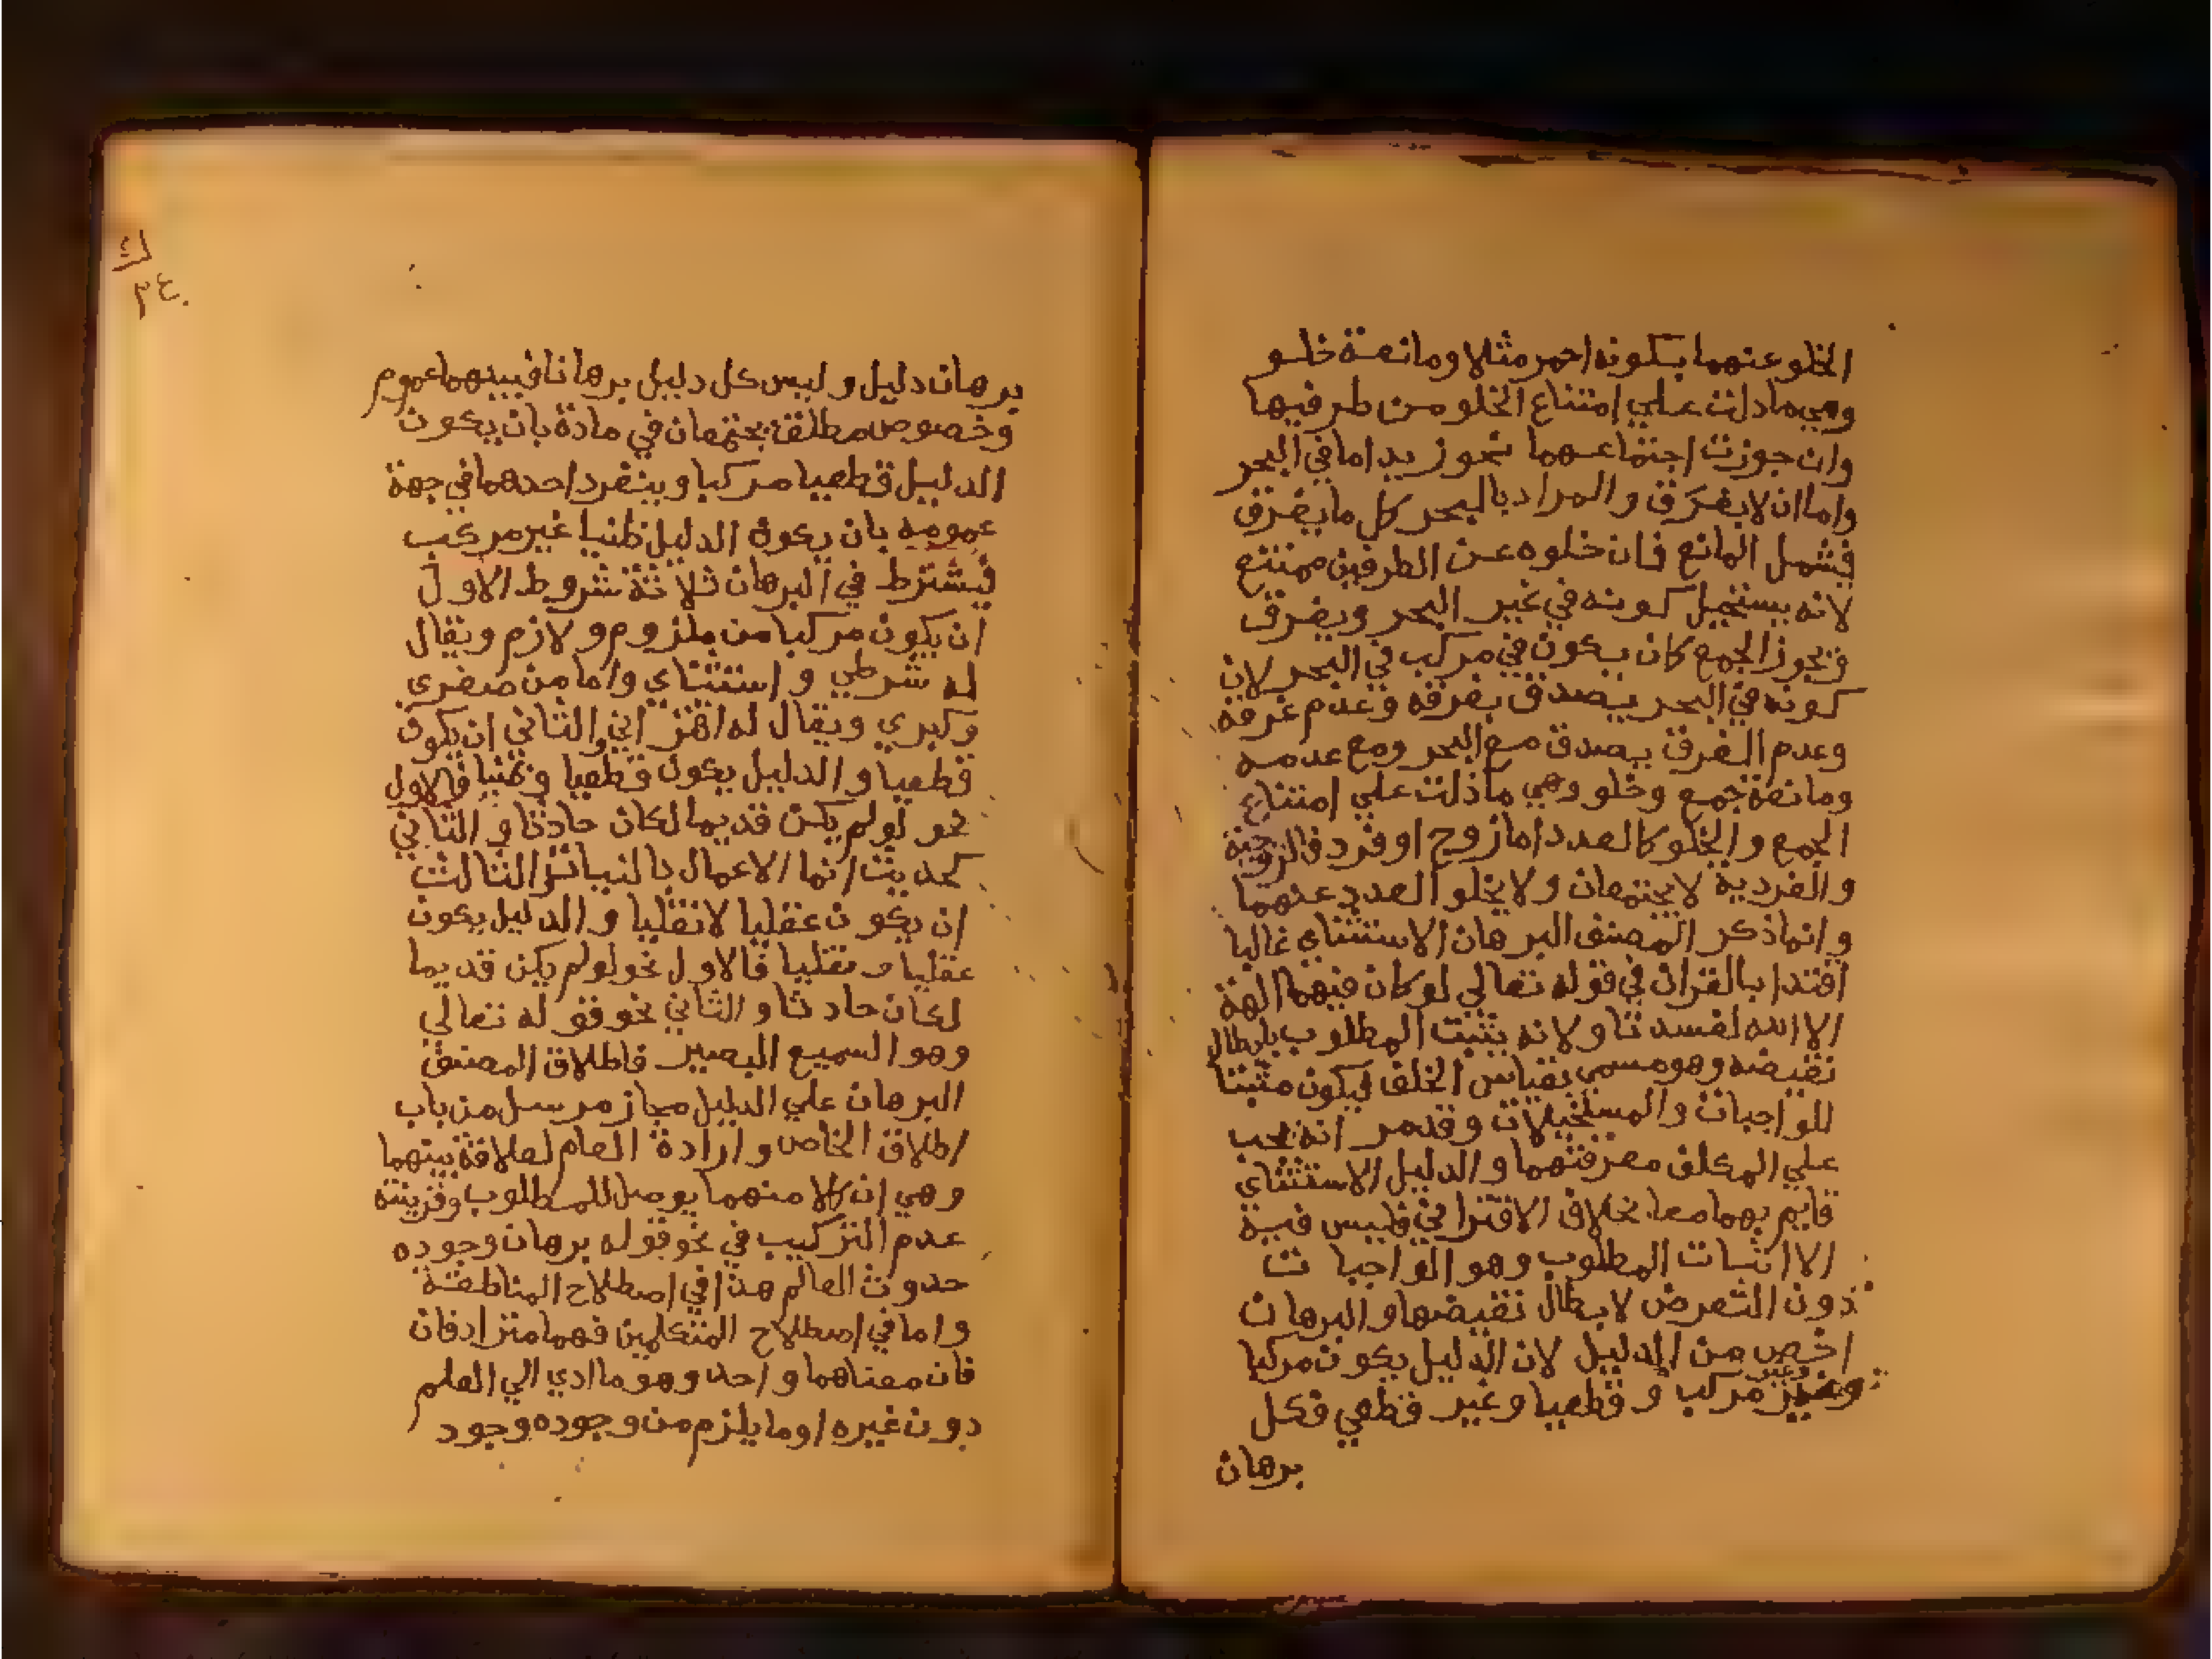 الخلو عنهما بكونه احمر مثلا ومانعة خلو
وهي ما دلت علي امتناع الخلو من طرفيها
وان جوزت اجتماعهما نحو زيد اما في البحر
واما ان لا يغرق والمراد بالبحر كل ما يغرق
فشمل المانع فان خلوه عن الطرفين ممتنع
لانه يستحيل كونه في غير البحر ويغرق
ويجوز الجمع كان يكون في مركب في البحر لان
كونه في البحر يصدق بغرقه وعدم غرقه
وعدم الغرق يصدق مع البحر ومع عدمه
ومانعة جمع وخلو وهي ما دلت علي امتناع
الجمع والخلو كالعدد اما زوج او فرد فالزوجية
والفردية لا يجتمعان ولا يخلو العدد عنهما
وانما ذكر المصنف البرهان الاستثناي غالبا
اقتدا بالقران في قوله تعالي لو كان فيهما الهة
الا الله لفسدتا ولانه يثبت المطلوب بابطال
نقيضه وهو مسمي بقياس الخلف فيكون مثبتا
للواجبات والمستحيلات وقد مر انه يجب
علي المكلف معرفتهما والدليل الاستثناي
قايم بهما معا بخلاف الاقتراني فليس فيه
الا اثبات المطلوب وهو الواجبات
دون التعرض لابطال نقيضها والبرهان
اخص من الدليل لان الدليل يكون مركبا
وغير مركب و قطعيا وغير قطعي فكل
برهان
ك
برهان دليل وليس كل دليل برهانا فبينهما عموم
وخصوص مطلق يجتمعان في مادة بان يكون
الدليل قطعيا مركبا وينفرد احدهما في جهة
عمومه بان يكون الدليل ظنيا غير مركب
فيشترط في البرهان ثلاثة شروط الاول
ان يكون مركبا من ملزوم ولازم ويقال
له شرطي و استثناي واما من صغري
وكبري ويقال له اقتراني والثاني ان يكون
قطعيا والدليل يكون قطعيا وظنيا فالاول
نحو لو لم يكن قديما لكان حادثا و الثاني
كحديث انما الاعمال بالنيات الثالث
ان يكون عقليا لا نقليا والدليل يكون
عقليا ونقليا فالاول نحو لو لم يكن قديما
لكان حادثا والثاني نحو قوله تعالي
وهو السميع البصير فاطلاق المصنف
البرهان علي الدليل مجاز مرسل من باب
اطلاق الخاص وارادة العام لعلاقة بينهما
وهي ان كلا منهما يوصل للمطلوب وقرينته
عدم التركيب في نحو قوله برهان وجوده
حدوث العالم هذا في اصطلاح المناطقة
واما في اصطلاح المتكلمين فهما مترادفان
فان معناهما واحد وهو ما ادي الي العلم
دون غيره او ما يلزم من وجوده وجود